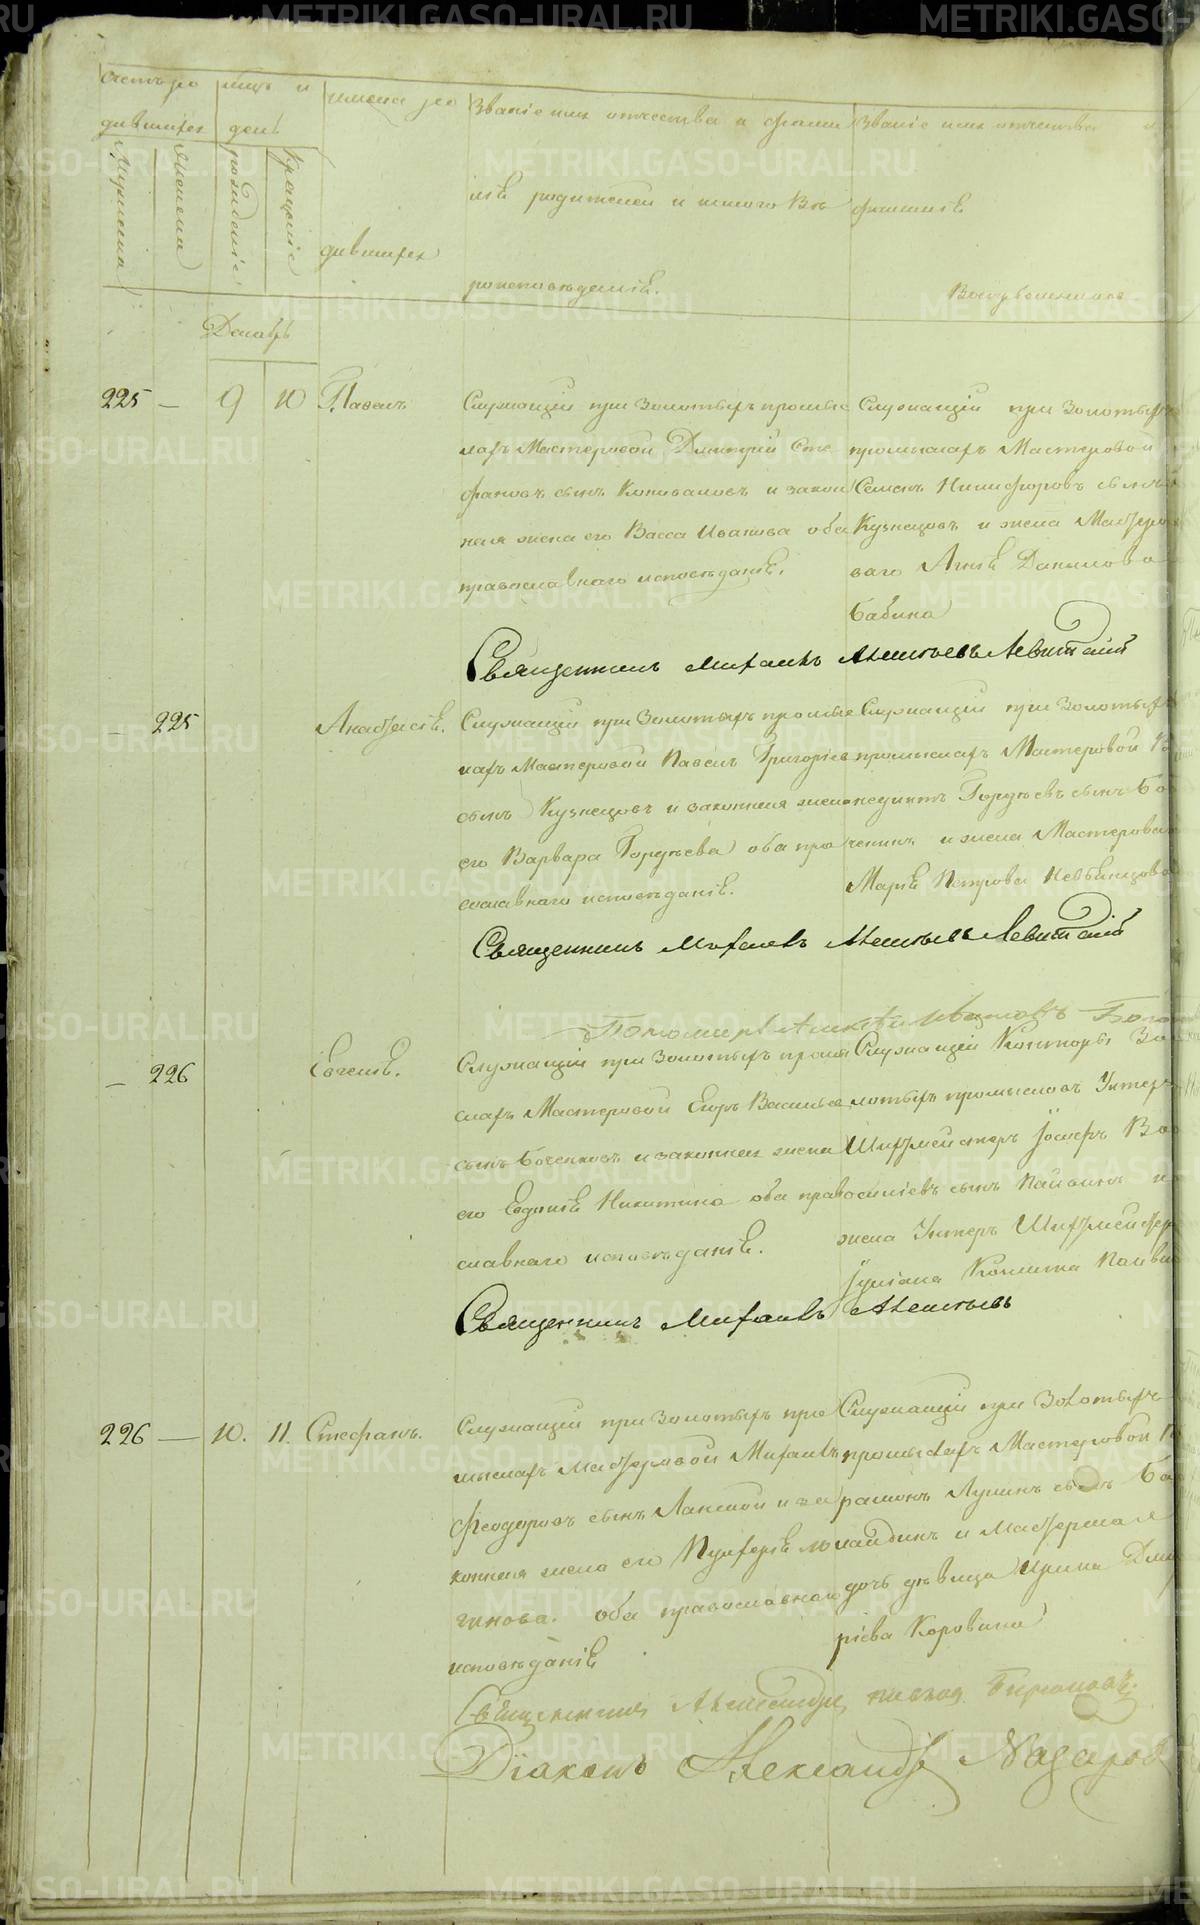 счетъ ро
дившихся
мѣсяцъ и
день
имена ро
дившихся
Званіе имя отчество и фами
лія родителей и какого вѣ
роисповѣданія.
Званіе имя отчество и
фамилія
Воспріемниковъ
Мужеска
Женска
рожденіе
Крещеніе
Декабрь
225 — 9 10 Павелъ
Служащій при Золотыхъ промыс
лахъ Мастеровой Дмитрій Сте
фановъ сынъ Коноваловъ и закон
ная жена его Васса Иванова оба
православнаго исповѣданія.
Служащій при Золотыхъ
промыслахъ Мастеровой
Семенъ Никифоровъ сынъ
Кузнецовъ и жена Мастеро
ваго Анна Данилова
Бабина
Священникъ Михаилъ Алексѣевъ Левитскій
— 225 Анастасія.
Служащій при Золотыхъ промыс
лахъ Мастеровой Павелъ Григорьев
сынъ Кузнецовъ и законная жена
его Варвара Гордѣева оба пра
вославнаго исповѣданія.
Служащій при Золотыхъ
промыслахъ Мастеровой
Гордѣевъ сынъ
и жена Мастероваго
Марія Петрова
Священникъ Михаилъ Алексѣевъ Левитскій
Пономарь Алексѣй
— 226 Евгенія.
Служащій при Золотыхъ промыс
лахъ Мастеровой Егоръ Васильев
сынъ Боченковъ и законная жена
его Евдокія Никитина оба право
славнаго исповѣданія.
Служащій Конторы Зо
лотыхъ промысловъ Унтеръ
Шихтмейстеръ Іосифъ Ва
сильевъ сынъ
жена Унтеръ Шихтмейстера
Іуліана
Священникъ Михаилъ Алексѣевъ
226 — 10. 11. Стефанъ.
Служащій при Золотыхъ про
мыслахъ Мастеровой Михаилъ
Феодоровъ сынъ Лапшой и за
конная жена его Пулхерія
оба православнаго
исповѣданія
Служащій при Золотыхъ
промыслахъ Мастеровой
Лукинъ сынъ
и Мастерская
дочь дѣвица Ирина Дмит
ріева Коровина
Священникъ Александръ
Діаконъ Александръ